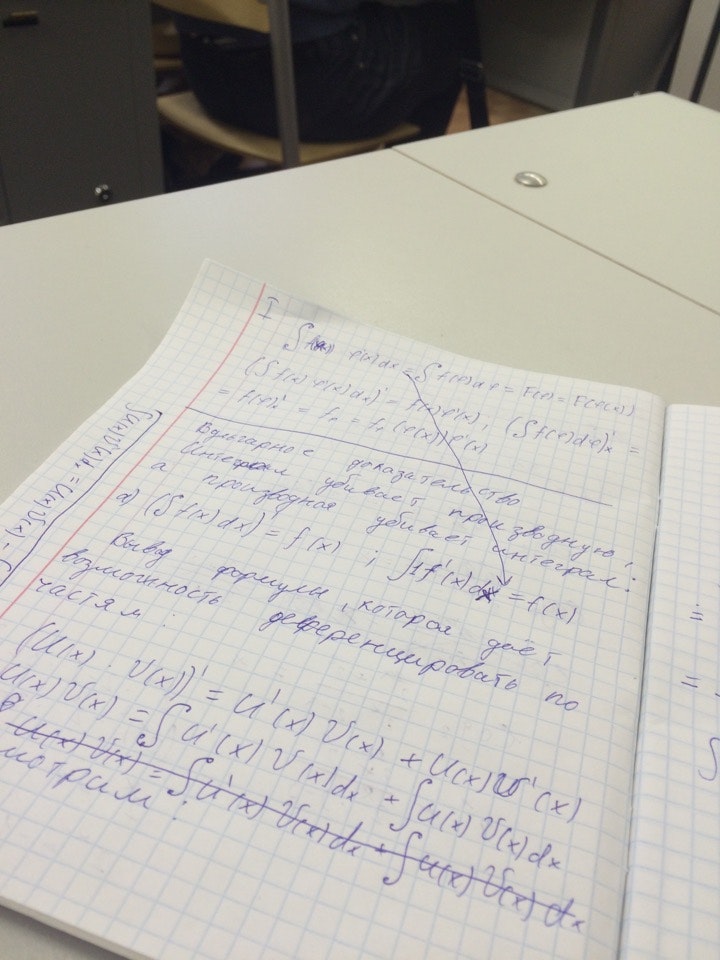 I
∫ f(φ(x)) φ'(x)dx = ∫ f(φ)dφ = F(φ) = F(φ(x))
(∫ f(x) φ'(x) dx)' = f(x)φ'(x), (∫ f(φ)dφ)'ₓ =
= f(φ)'ₓ = fₓ = fₓ (φ(x)) φ'(x)
Вульгарное доказательство
Интеграл убивает производную;
а производная убивает интеграл:
а) (∫ f(x) dx)' = f(x) ; ∫ f'(x) dx = f(x)
Вывод формулы, которая даёт
возможность деференцировать по
частям:
(U(x) · V(x))' = U'(x) V(x) + U(x) V'(x)
U(x) V(x) = ∫ U'(x) V(x)dx + ∫ U(x) V(x)dx
U(x) V(x) = ∫ U'(x) V(x)dx + ∫ U(x) V(x) dx
мотрим:
∫ U(x) V'(x)dx = U(x) V(x) -
=
=
∫